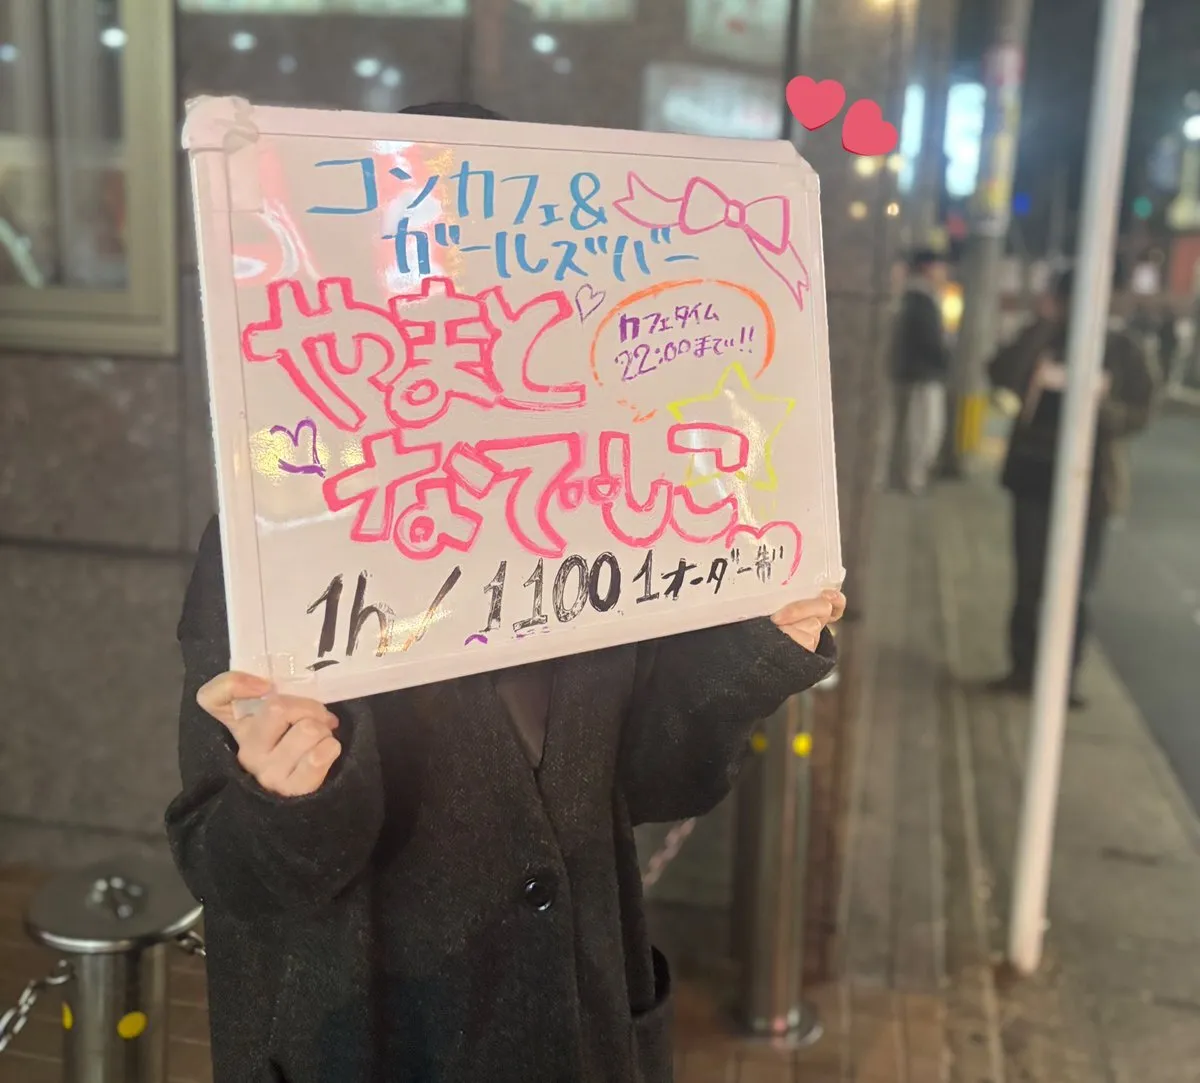 コンカフェ&
ガールズバー
やまと
なでしこ
カフェタイム
22:00まで!!
1h/1100 1オーダー制